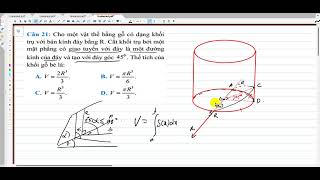 Câu 21: Cho một vật thể bằng gỗ có dạng khối
trụ với bán kính đáy bằng R. Cắt khối trụ bởi một
mặt phẳng có giao tuyến với đáy là một đường
kính của đáy và tạo với đáy góc 45°. Thể tích của
khối gỗ bé là:
A. V = 2R³/3
B. V = πR³/6
C. V = R³/3
D. V = πR³/3
V = ∫ S(x)dx